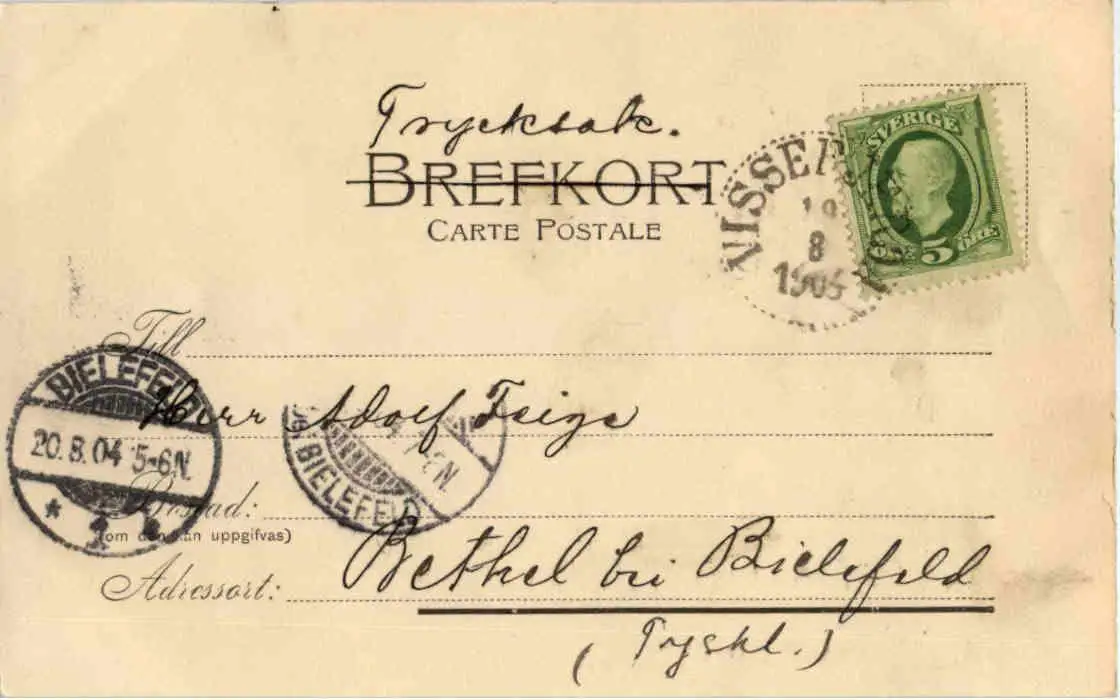 Trycksak.
BREFKORT
CARTE POSTALE
SVERIGE
5 ÖRE
8
Till
BIELEFELD
20.8.04 5-6N.
* 1 *
Herr Adolf
BIELEFELD
Bostad:
(om den kan uppgifvas)
Adressort:
Bethel bei Bielefeld
(Tyskl.)